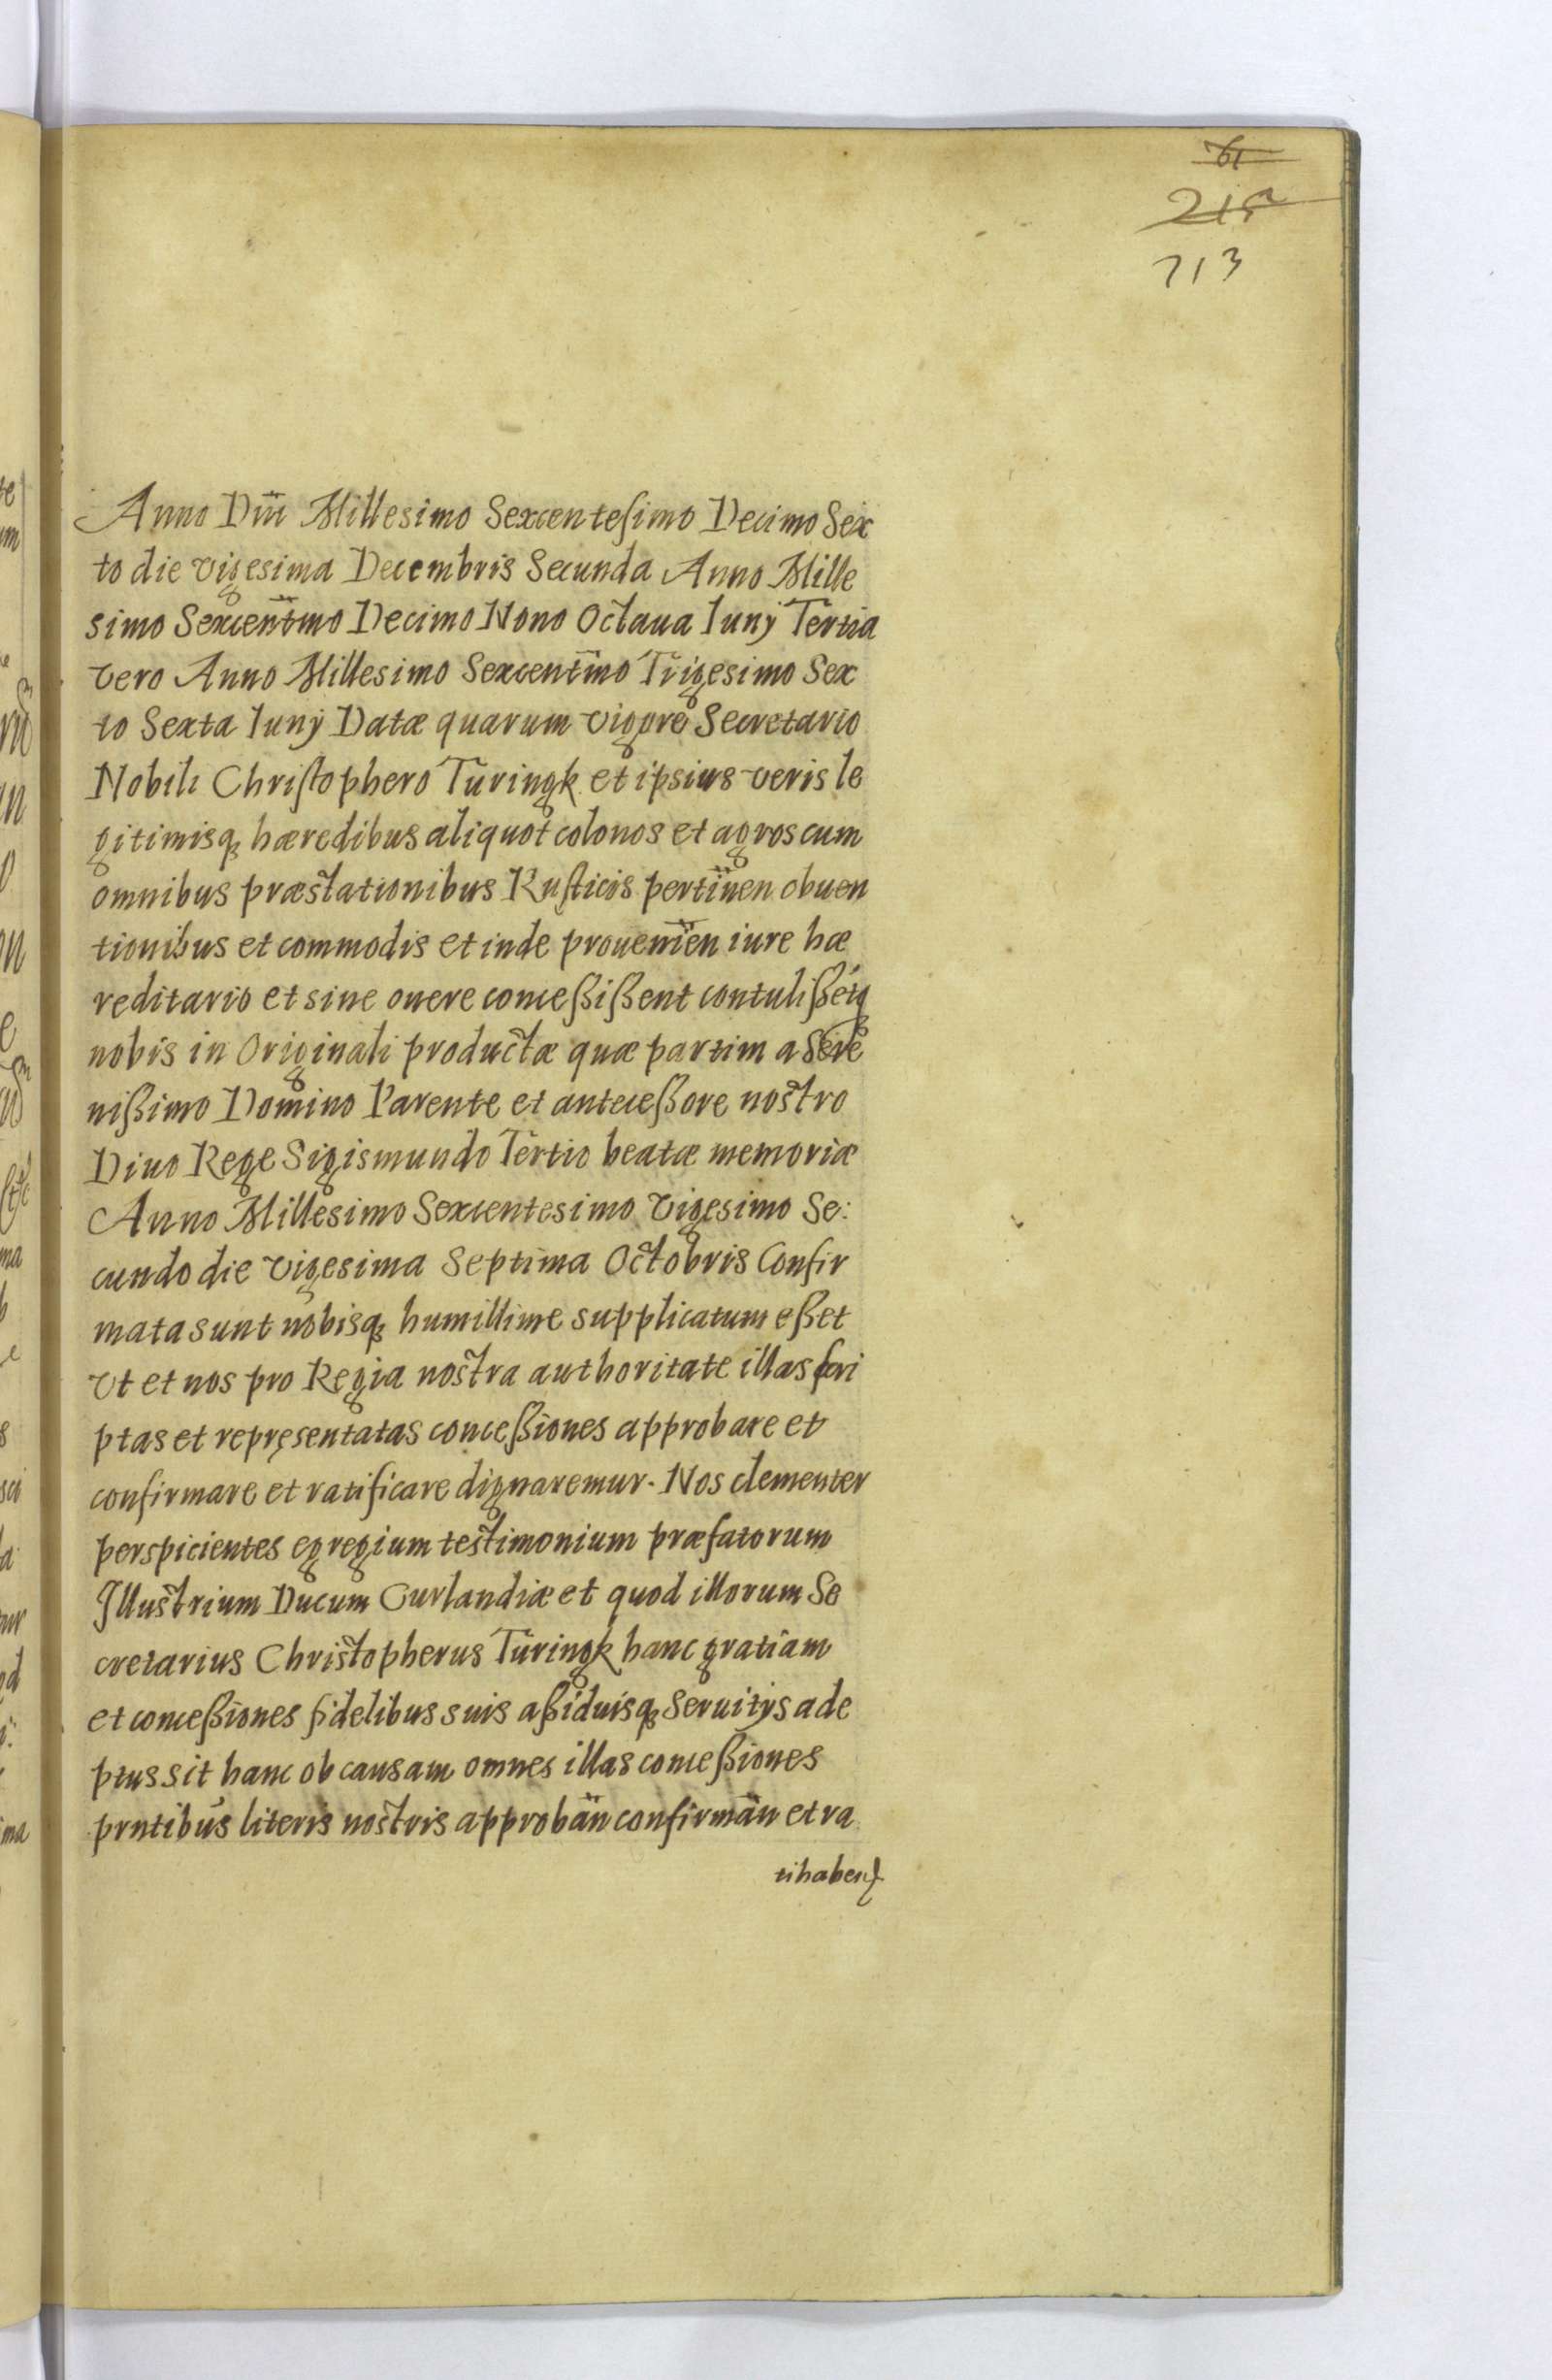 61
215a
713
Anno Dm̃i Millesimo Sexcentesimo Decimo Sex
to die vigesima Decembris Secunda Anno Mille
simo Sexcentm̃o Decimo Nono Octaua Iunÿ Tertia
vero Anno Millesimo Sexcentm̃o Trigesimo Sex
to Sexta Iunÿ Datæ quarum vigore Secretario
Nobili Christophero Türingk et ipsius veris le
gitimisq hæredibus aliquot colonos et agros cum
omnibus præstationibus Rusticis pertin̈en obuen
tionibus et commodis et inde prouenien̈ iure hæ
reditario et sine onere conceßißent contulißẽtq
nobis in Originali productæ quæ partim a Sere
nißimo Domino Parente et anteceßore nostro
Diuo Rege Sigismundo Tertio beatæ memoriæ
Anno Millesimo Sexcentesimo Vigesimo Se:
cundo die vigesima Septima Octobris Confir
mata sunt nobisq humillime supplicatum eßet
vt et nos pro Regia nostra authoritate illas scri
ptas et repręsentatas conceßiones approbare et
confirmare et ratificare dignaremur. Nos clementer
perspicientes egregium testimonium præfatorum
Illustrium Ducum Curlandiæ et quod illorum Se
cretarius Christopherus Türingk hanc gratiam
et conceßiones fidelibus suis aßiduisq Seruitÿs ade
ptus sit hanc ob causam omnes illas conceßiones
prntibus literis nostris approban̈ confirman̈ et ra
tihabend